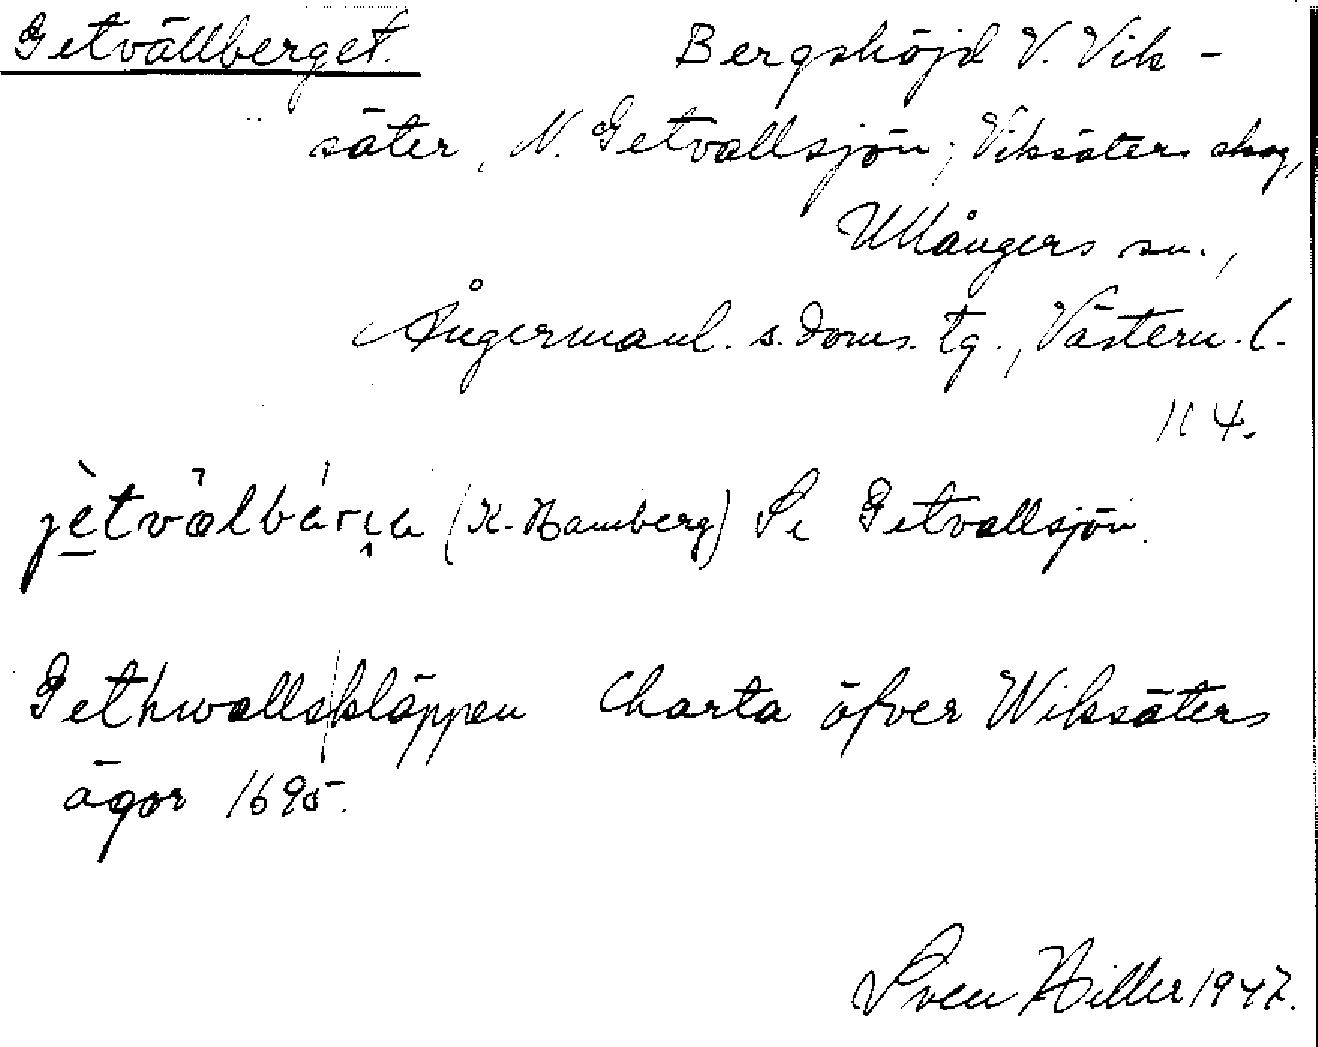 Getvällberget. Bergshöjd V. Vik-
säter, N. Getvallsjön; Viksäters skog,
Ullångers sn.,
Ångermanl. s. doms. tg., Västern. l.
114.
(K. Hamberg) Se Getvallsjön.
Gethwalls|kläppen Charta öfver Wiksäters
ägor 1695.
Sven Hiller 1947.